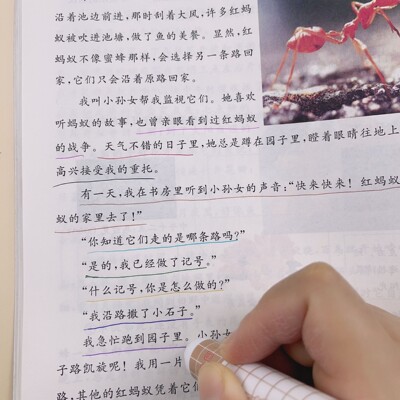 沿着池边前进，那时刮着大风，许多红蚂
蚁被吹进池塘，做了鱼的美餐。显然，红
蚂蚁不像蜜蜂那样，会选择另一条路回
家，它们只会沿着原路回家。
我叫小孙女帮我监视它们。她喜欢
听蚂蚁的故事，也曾亲眼看到过红蚂蚁
的战争。天气不错的日子里，她总是蹲在园子里，瞪着眼睛往地上
高兴接受我的重托。
有一天，我在书房里听到小孙女的声音：“快来快来！红蚂
蚁的家里去了！”
“你知道它们走的是哪条路吗？”
“是的，我已经做了记号。”
“什么记号，你是怎么做的？”
“我沿路撒了小石子。”
我急忙跑到园子里。小孙女
子路凯旋呢！我用一片
路，其他的红蚂蚁凭着它们